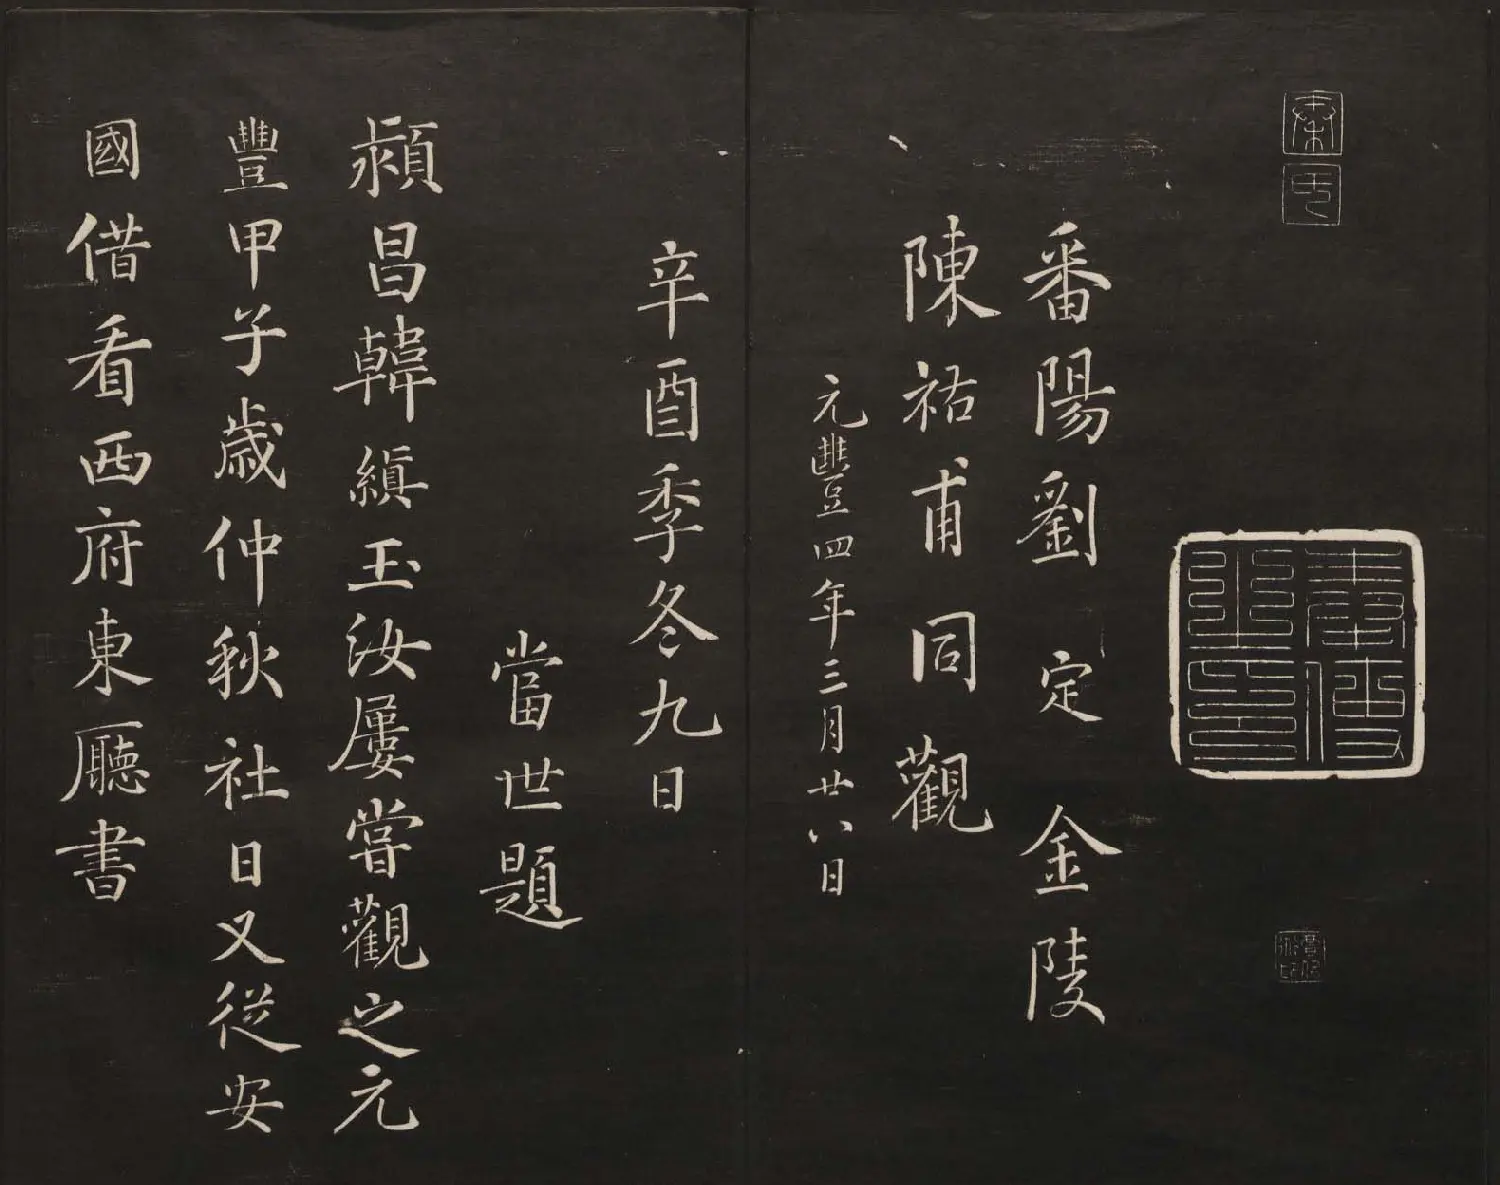 番陽劉定金陵
陳祐甫同觀
元豐四年三月廿八日
辛酉季冬九日
當世題
潁昌韓縝玉汝屢嘗觀之元
豐甲子歲仲秋社日又從安
國借看西府東廳書